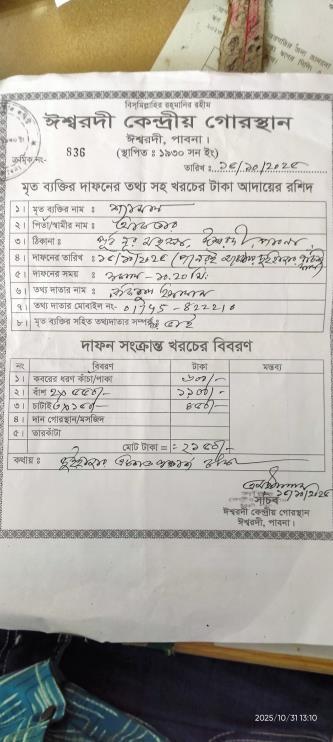 বিসমিল্লাহির রহমানির রহীম
ঈশ্বরদী কেন্দ্রীয় গোরস্থান
ঈশ্বরদী, পাবনা।
(স্থাপিত ঃ ১৯৩০ সন ইং)
ক্রমিক নং- 836
তারিখ ঃ ১৫/১০/২০২৫
মৃত ব্যক্তির দাফনের তথ্য সহ খরচের টাকা আদায়ের রশিদ
১। মৃত ব্যক্তির নাম ঃ
২। পিতা/স্বামীর নাম ঃ
৩। ঠিকানা ঃ
৪। দাফনের তারিখ ঃ ১৫/১০/২০২৫
৫। দাফনের সময় ঃ সকাল - ১০.২০ মিঃ
৬। তথ্য দাতার নাম ঃ
৭। তথ্য দাতার মোবাইল নং- 01745-822210
৮। মৃত ব্যক্তির সহিত তথ্যদাতার সম্পর্ক ঃ ভাই
দাফন সংক্রান্ত খরচের বিবরণ
নং বিবরণ টাকা মন্তব্য
১। কবরের ধরণ কাঁচা/পাকা ৬০০/-
২। বাঁশ ২x ৫৫০/- ১১০০/-
৩। চাটাই ৩x১৫০/- ৪৫০/-
৪। দান গোরস্থান/মসজিদ
৫। তারকাঁটা
মোট টাকা = ২১৫০/-
কথায় ঃ দুই হাজার একশত পঞ্চাশ টাকা
১৫/১০/২০২৫
সচিব
ঈশ্বরদী কেন্দ্রীয় গোরস্থান
ঈশ্বরদী, পাবনা।
2025/10/31 13:10